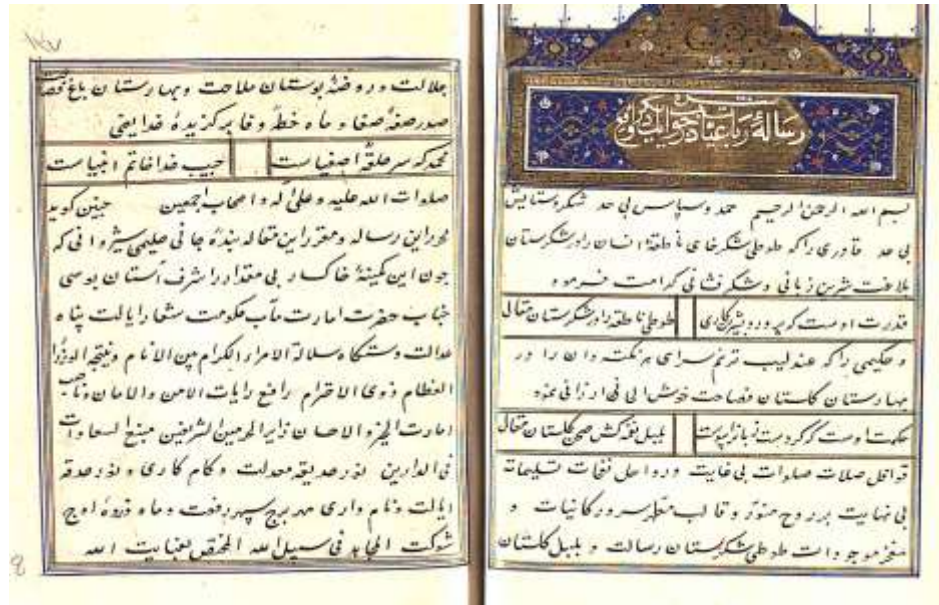 رسالهٔ
بسم الله الرحمن الرحیم حمد و سپاس بی حد شکر و ستایش
بی حد قادری را که طوطی شکرخای ناطقهٔ انسان را در شکرستان
بلاغت شیرین زبانی و شکر فشانی کرامت فرموده
قدرت اوست که پرورد و شیرین کاری طوطی ناطقه را در شکرستان مقال
و حکیمی را که عندلیب ترنم سرای را در
بهارستان گلستان فصاحت خوش الحانی ارزانی نموده
حکمت اوست که کردست بلبل نغمه کش صحن گلستان مقال
قوافل صلات صلوات بی غایت و رواحل نفحات تسلیمات
بی نهایت بر روح منور و قالب معطر سرور کائنات و
مفخر موجودات طوطی شکرستان رسالت و بلبل گلستان
جلالت و روضهٔ بوستان ملاحت و بهارستان باغ
صدر صفهٔ صفا و ماه خطهٔ وفا برگزیدهٔ خدا یعنی
محمد که سر حلقهٔ اصفیاست حبیب خدا خاتم انبیاست
صلوات الله علیه و علی آله و اصحابه اجمعین چنین کوید
محرر این رساله و مقرر این مقاله بندهٔ جانی حلیمی شیروانی که
چون این کمینهٔ خاکسار بی مقدار را شرف آستان بوسی
جناب حضرت امارت مآب حکومت شعار ایالت پناه
عدالت دستگاه سلالة الامراء الکرام بین الانام و نتیجة الوزراء
العظام ذوی الاحترام رافع رایات الامن و الامان
امارت الخیر و الاحسان زایر الحرمین الشریفین منبع السعادات
فی الدارین نور حدیقهٔ معدلت و کام کاری و نور حدقهٔ
ایالت و نام داری مهر برج سپهر رفعت و ماه ذروهٔ اوج
شوکت المجاهد فی سبیل الله المختص بعنایت الله